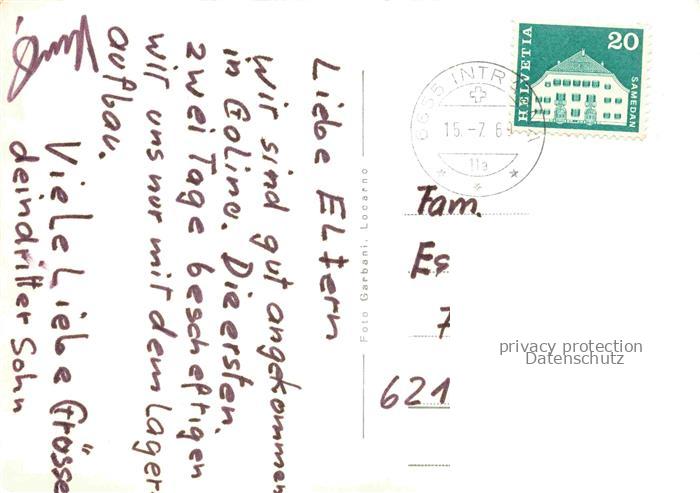 Liebe Eltern
Wir sind gut angekommen
in Golino. Die ersten
zwei Tage bescheftigen
wir uns nur mit dem Lager-
aufbau.
Viele Liebe Grösse
dein dritter Sohn
Foto Garbani, Locarno
HELVETIA
20
SAMEDAN
6655 INTR
15.-7.69
11a
Fam.
Es
7
621
privacy protection
Datenschutz